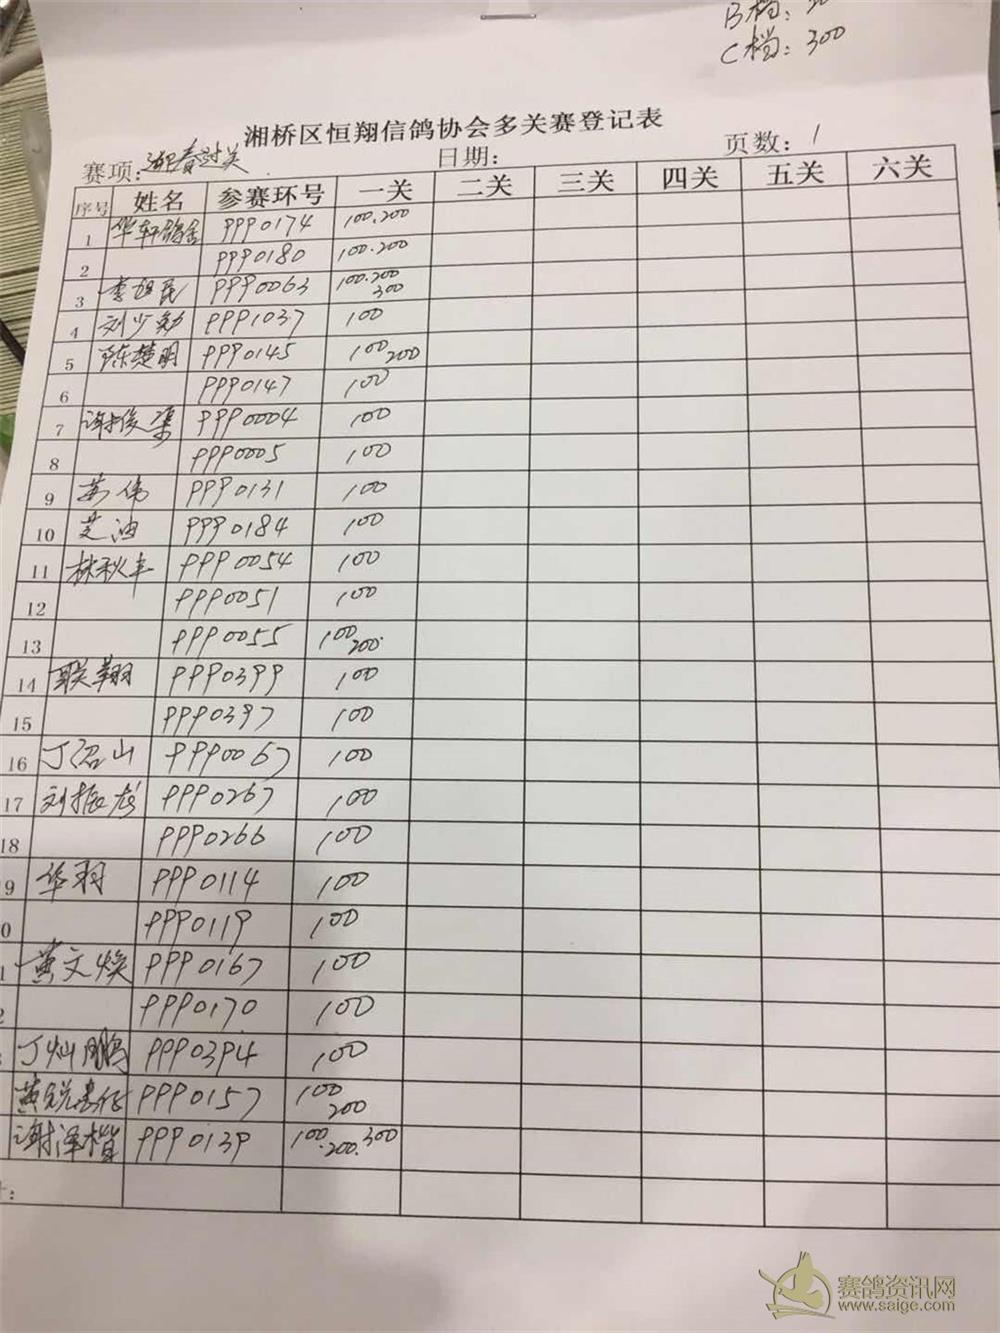 B档:
C档: 300
湘桥区恒翔信鸽协会多关赛登记表
赛项: 迎春过关 日期: 页数: 1
序号 姓名 参赛环号 一关 二关 三关 四关 五关 六关
1 华轩鸽舍 PPP0174 100.200
2 PPP0180 100.200
3 李旭民 PPP0063 100.200 300
4 刘少勉 PPP1037 100
5 陈楚明 PPP0145 100 200
6 PPP0147 100
7 谢俊集 PPP0004 100
8 PPP0005 100
9 伟 PPP0131 100
10 芝油 PPP0184 100
11 林秋丰 PPP0054 100
12 PPP0051 100
13 PPP0055 100 200
14 联翔 PPP0399 100
15 PPP0397 100
16 丁沼山 PPP0067 100
17 刘振彪 PPP0267 100
18 PPP0266 100
9 华羽 PPP0114 100
0 PPP0119 100
1 黄文焕 PPP0167 100
2 PPP0170 100
丁灿鹏 PPP0394 100
黄 PPP0157 100 200
谢泽楷 PPP0139 100.200.300
计:
赛鸽资讯网
www.saige.com